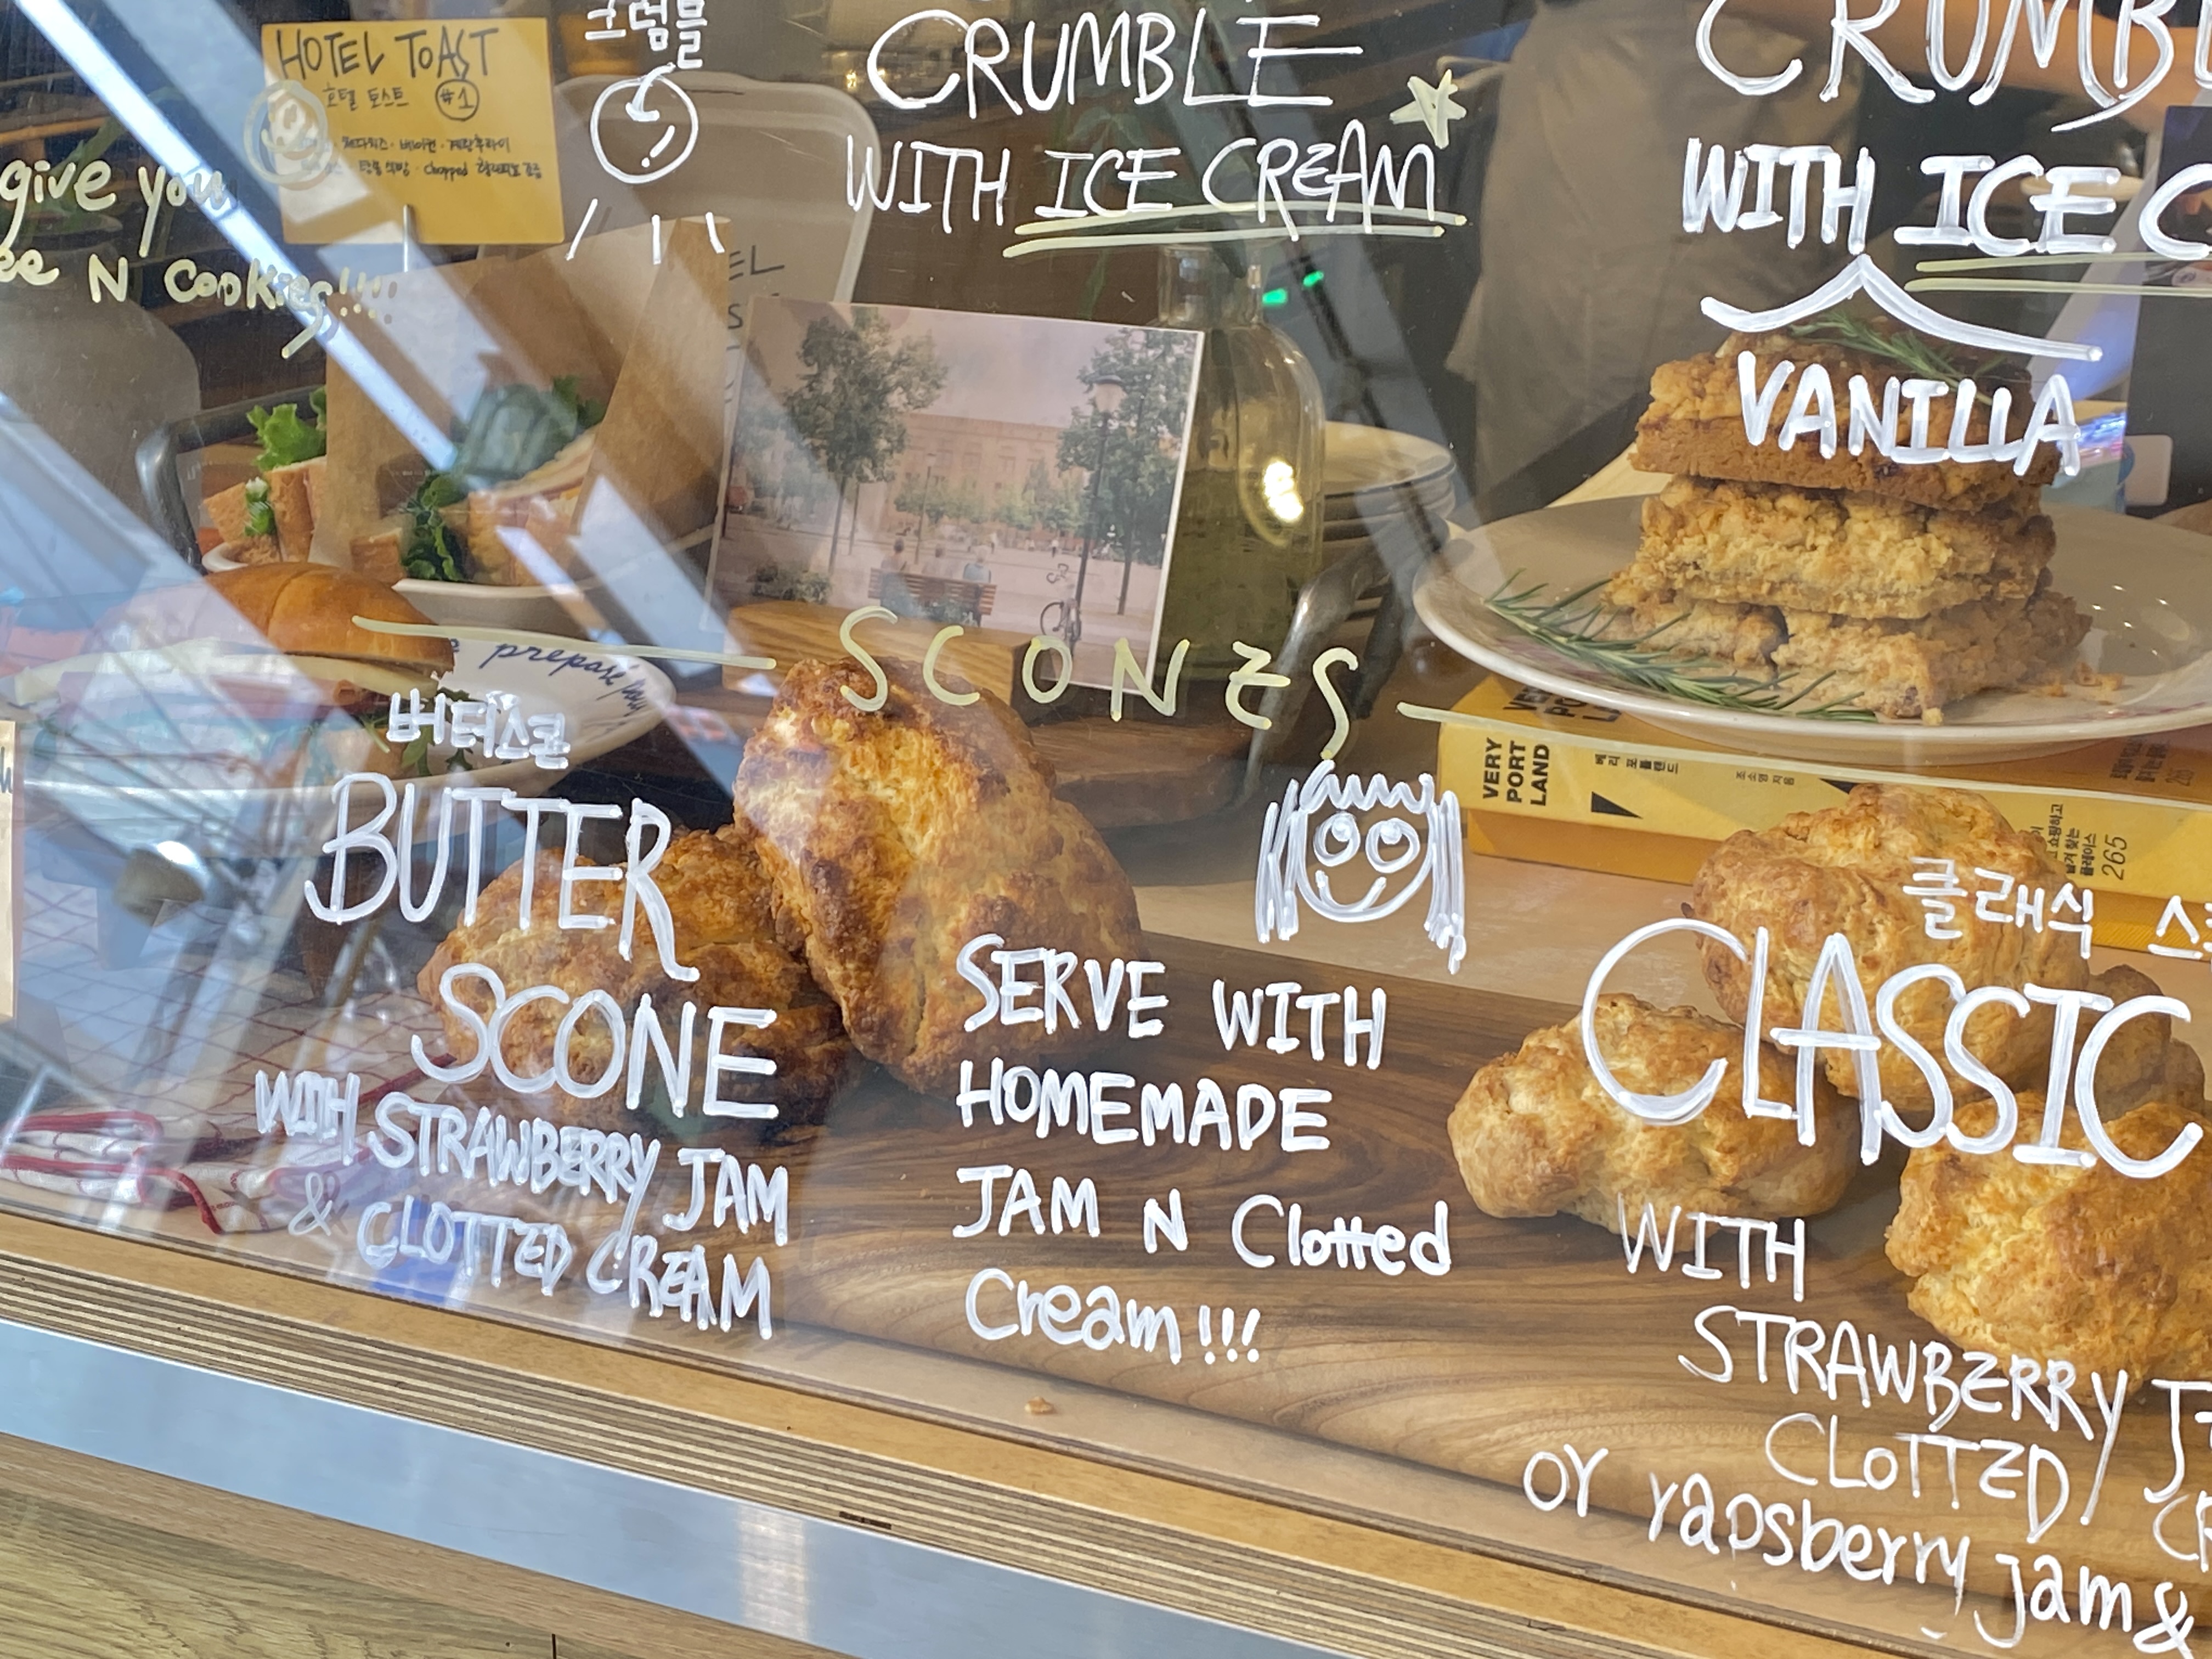 HOTEL TOAST
호텔 토스트 #1
체다치즈 · 베이컨 · 계란후라이
chopped
give you
N COOKIES!!!!
크럼블
CRUMBLE
WITH ICE CREAM
WITH ICE C
VANILLA
SCONES
버터스콘
BUTTER
SCONE
WITH STRAWBERRY JAM
& CLOTTED CREAM
SERVE WITH
HOMEMADE
JAM N Clotted
Cream!!!
VERY
PORT
LAND
베리 포틀랜드
조소영 지음
265
클래식 스
CLASSIC
WITH
STRAWBERRY J
CLOTTED CR
or rapsberry jam &